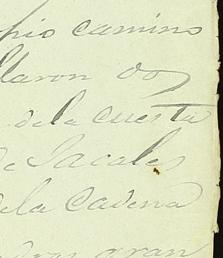 pio camino
llaron dos
de la cuesta
de Jacales
de la Cadena
gran